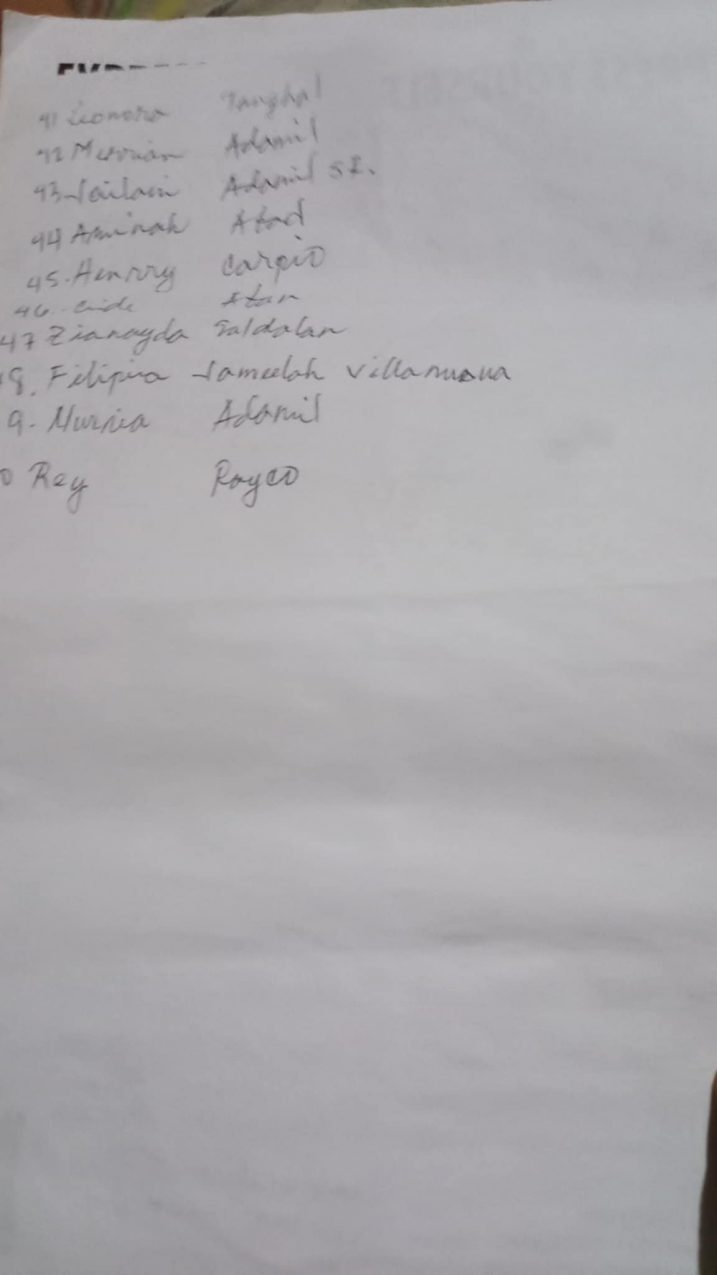 41 Leonora Tanghal
42 Adamil
43 Jailani Adamil SR.
44 Aminah Atad
45. Henrry Carpio
46. Atan
47 Zianayda Saldalan
8. Filipina Jameelah Villanueva
9. Nurnia Adamil
0 Rey Royco